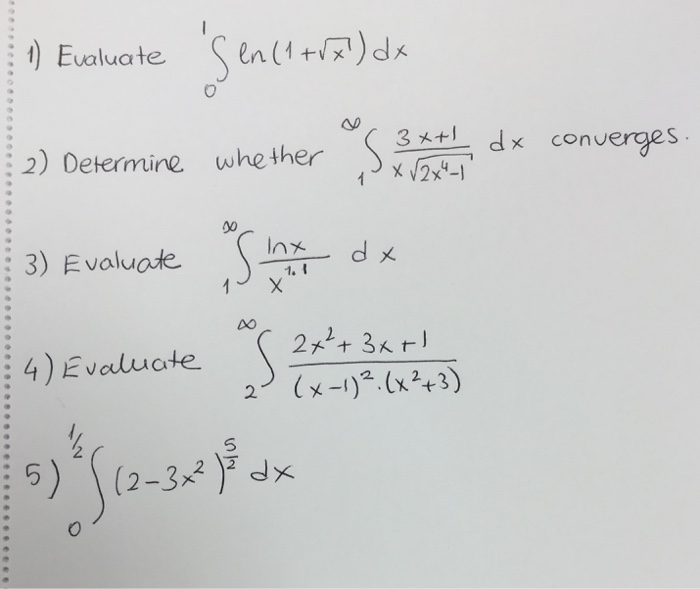 1) Evaluate ∫₀¹ ln(1+√x) dx
2) Determine whether ∫₁^∞ (3x+1)/(x√(2x⁴-1)) dx converges.
3) Evaluate ∫₁^∞ lnx/x^1.1 dx
4) Evaluate ∫₂^∞ (2x²+3x+1)/((x-1)².(x²+3))
5) ∫₀^1/2 (2-3x²)^5/2 dx